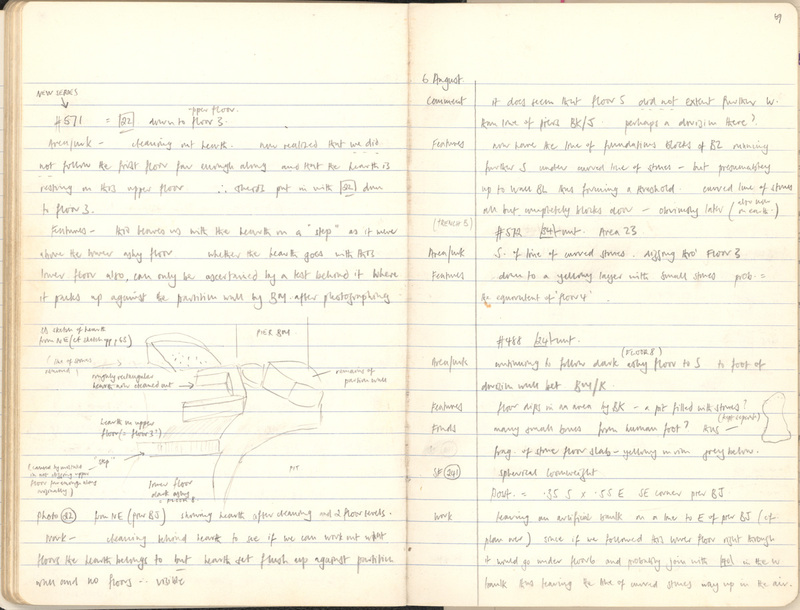 NEW SERIES
upper floor.
#571 = 22 down to floor 3.
Area/unk - cleaning out hearth. now realized that we did
not follow the first floor far enough along and that the hearth is
resting on this upper floor ∴ sherds put in with 22 down
to floor 3.
Features - this leaves us with the hearth on a "step" as it were
above the lower ashy floor whether the hearth goes with this
lower floor also, can only be ascertained by a test behind it where
it packs up against the partition wall by BM. after photographing
sketch of hearth
from NE (cf sketch pg 65)
(line of stones
removed)
PIER BM
roughly rectangular
hearth now cleaned out
remains of
partition wall
hearth on upper
floor (= floor 3?)
"step"
(caused by
in not digging upper
floor far enough along
originally)
lower floor
dark ashy
PIT
Photo 32 from NE (pier BJ) showing hearth after cleaning and 2 floor levels.
Work - cleaning behind hearth to see if we can work out what
floors the hearth belongs to but hearth set flush up against partition
wall and no floors ∴ visible
6 August.
Comment it does seem that floor 5 did not extend further W.
than line of piers BK/J. perhaps a division there?
Features now have the line of foundations blocks of BZ running
further S under curved line of stones - but presumably
up to wall BL thus forming a threshold. curved line of stones
all but completely blocks door - obviously later
(TRENCH 5)
#572 34 unit. Area 23
Area/unk S. of line of curved stones. digging thro' Floor 3
Features down to a yellowy layer with small stones prob. =
the equivalent of 'floor 4'.
#488 34 unit.
(FLOOR 8)
Area/unk continuing to follow dark ashy floor to S to foot of
division wall bet BM/K.
Features floor dips in an area by BK - a pit filled with stones?
(kept separate)
Finds many small bones from human foot? thus
frag. of stone floor slab - yellowy in rim grey below.
SF 241 spherical loomweight
Dout. = .35 S x .55 E SE corner pier BJ
Work leaving an artificial baulk on a line to E of pier BJ (cf
plan over) since if we followed this lower floor right through
it would go under floor 6 and probably join with in the W
baulk thus leaving the line of curved stones way up in the air.